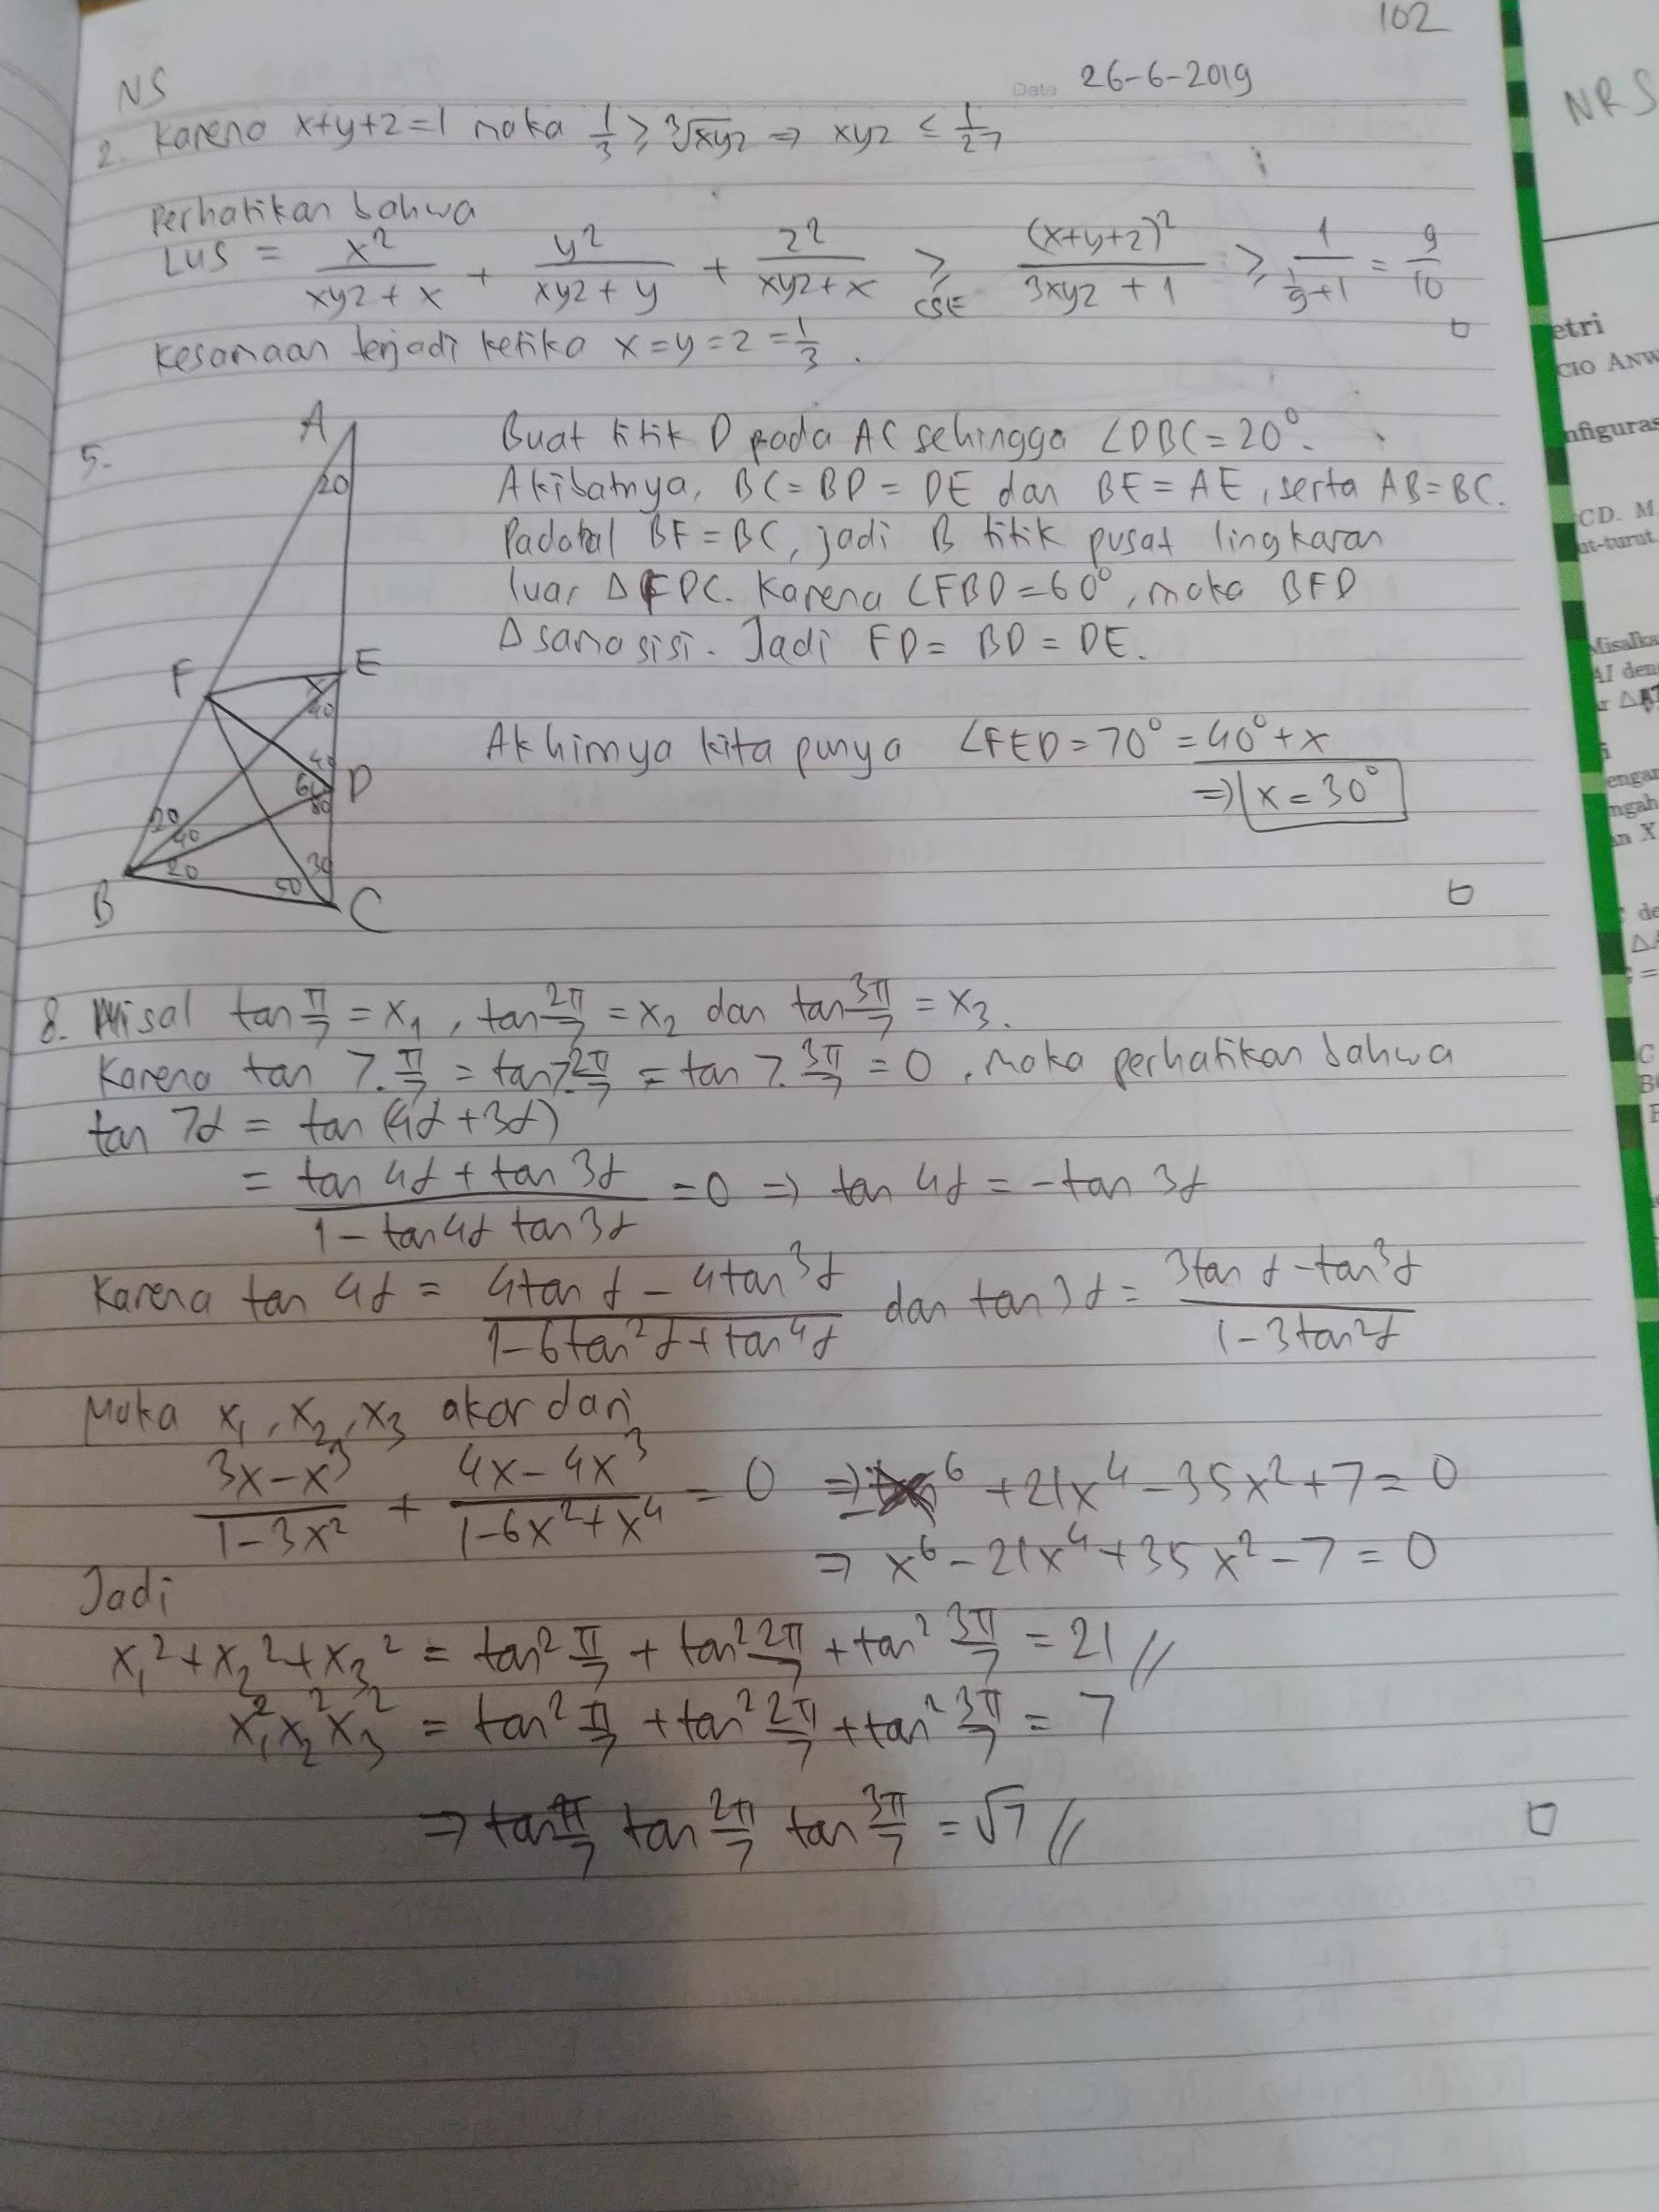 102
NS
Data 26-6-2019
2. Karena x+y+z=1 maka 1/3 ≥ ∛xyz ⇒ xyz ≤ 1/27
Perhatikan bahwa
LHS = x²/(xyz+x) + y²/(xyz+y) + z²/(xyz+x) ≥ CSE (x+y+z)²/(3xyz+1) ≥ 1/(1/9+1) = 9/10
Kesamaan terjadi ketika x=y=z=1/3.
5.
A
20
F
E
x
40
40
60
D
80
20
40
20
30
50
B
C
Buat titik D pada AC sehingga ∠DBC=20°.
Akibatnya, BC=BD=DE dan BE=AE, serta AB=BC.
Padahal BF=BC, jadi B titik pusat lingkaran
luar ΔFDC. Karena ∠FBD=60°, maka BFD
Δsama sisi. Jadi FD=BD=DE.
Akhirnya kita punya ∠FED=70°=40°+x
⇒ x=30°
8. Misal tan π/7 = x₁, tan 2π/7 = x₂ dan tan 3π/7 = x₃.
Karena tan 7.π/7 = tan 7.2π/7 = tan 7.3π/7 = 0, maka perhatikan bahwa
tan 7α = tan (4α+3α)
= (tan 4α + tan 3α)/(1 - tan 4α tan 3α) = 0 ⇒ tan 4α = -tan 3α
Karena tan 4α = (4tan α - 4tan³α)/(1-6tan²α+tan⁴α) dan tan 3α = (3tan α - tan³α)/(1-3tan²α)
Maka x₁, x₂, x₃ akar dari
(3x-x³)/(1-3x²) + (4x-4x³)/(1-6x²+x⁴) = 0 ⇒ ⁶+21x⁴-35x²+7=0
⇒ x⁶-21x⁴+35x²-7=0
Jadi
x₁²+x₂²+x₃² = tan² π/7 + tan² 2π/7 + tan² 3π/7 = 21 //
x₁²x₂²x₃² = tan² π/7 + tan² 2π/7 + tan² 3π/7 = 7
⇒ tan π/7 tan 2π/7 tan 3π/7 = √7 //
NRS
etri
CIO ANW
nfiguras
CD. M
ut-turut
Misalka
AI den
engan
ngah
n X
de